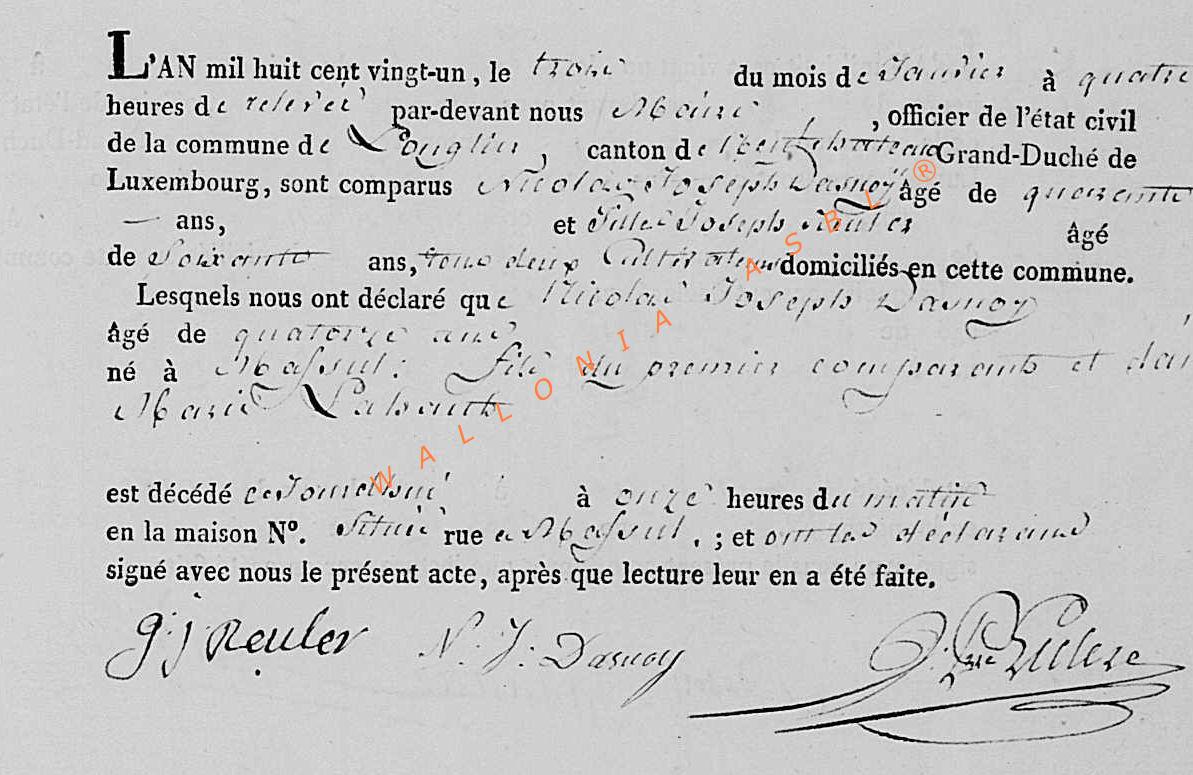 L'AN mil huit cent vingt-un, le trois du mois de Janvier à quatre
heures de relevée par-devant nous Maire, officier de l'état civil
de la commune de Longlier, canton de Neufchateau Grand-Duché de
Luxembourg, sont comparus Nicolas Joseph Dasnoy âgé de quarante
— ans, et Gille Joseph Reuler âgé
de Soixante ans, tous deux Cultivateurs domiciliés en cette commune.
Lesquels nous ont déclaré que Nicolas Joseph Dasnoy
âgé de quatorze ans
né à Massul: fils du premier comparant et de
Marie
est décédé ce Jourdhui à onze heures du matin
en la maison N°. Située rue a Massul. ; et ont les déclarans
signé avec nous le présent acte, après que lecture leur en a été faite.
g: j Reuler N: J: Dasnoy
WALLONIA ASBL ®